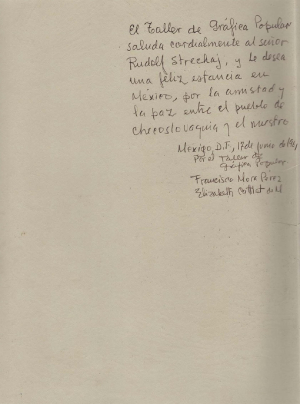 El Taller de Gráfica Popular
saluda cordialmente al señor
Rudolf Strechaj, y le desea
una feliz estancia en
México, por la amistad y
la paz entre el pueblo de
checoslovaquia y el nuestro
México, D.F., 17 de junio de
Por el Taller de
Gráfica Popular
Francisco Mora Pérez
Elizabeth Catlett de M